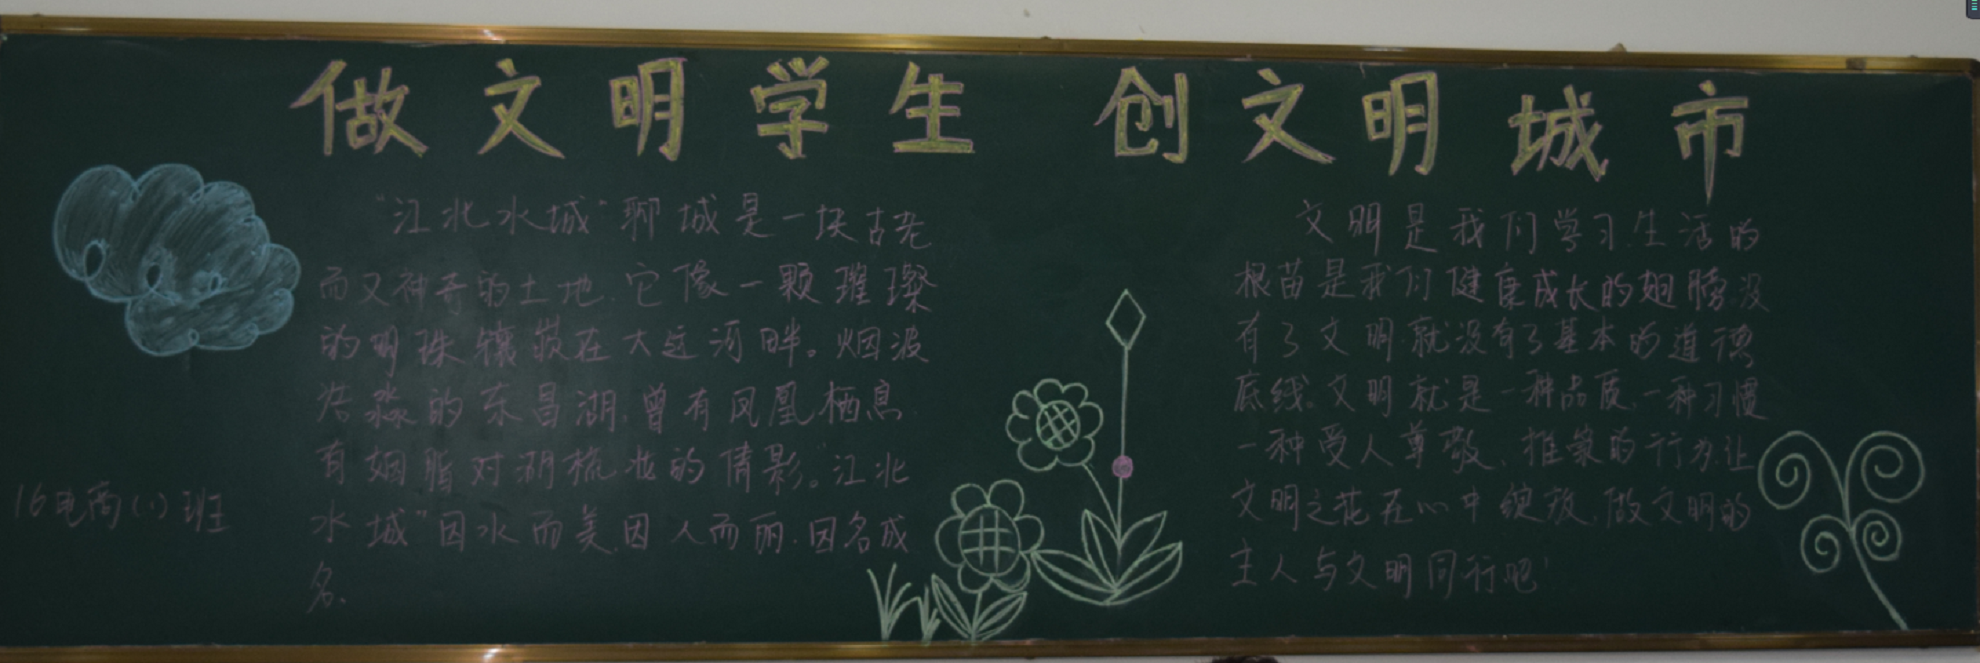 做文明学生 创文明城市
"江北水城"聊城是一块古老
而又神奇的土地,它像一颗璀璨
的明珠镶嵌在大运河畔。烟波
浩淼的东昌湖,曾有凤凰栖息,
有胭脂对湖梳妆的倩影。"江北
水城"因水而美,因人而丽,因名成
名、
16电商(1)班
文明是我们学习生活的
根苗是我们健康成长的翅膀,没
有了文明,就没有了基本的道德
底线。文明就是一种品质,一种习惯
一种受人尊敬、推崇的行为,让
文明之花在心中绽放,做文明的
主人与文明同行吧!